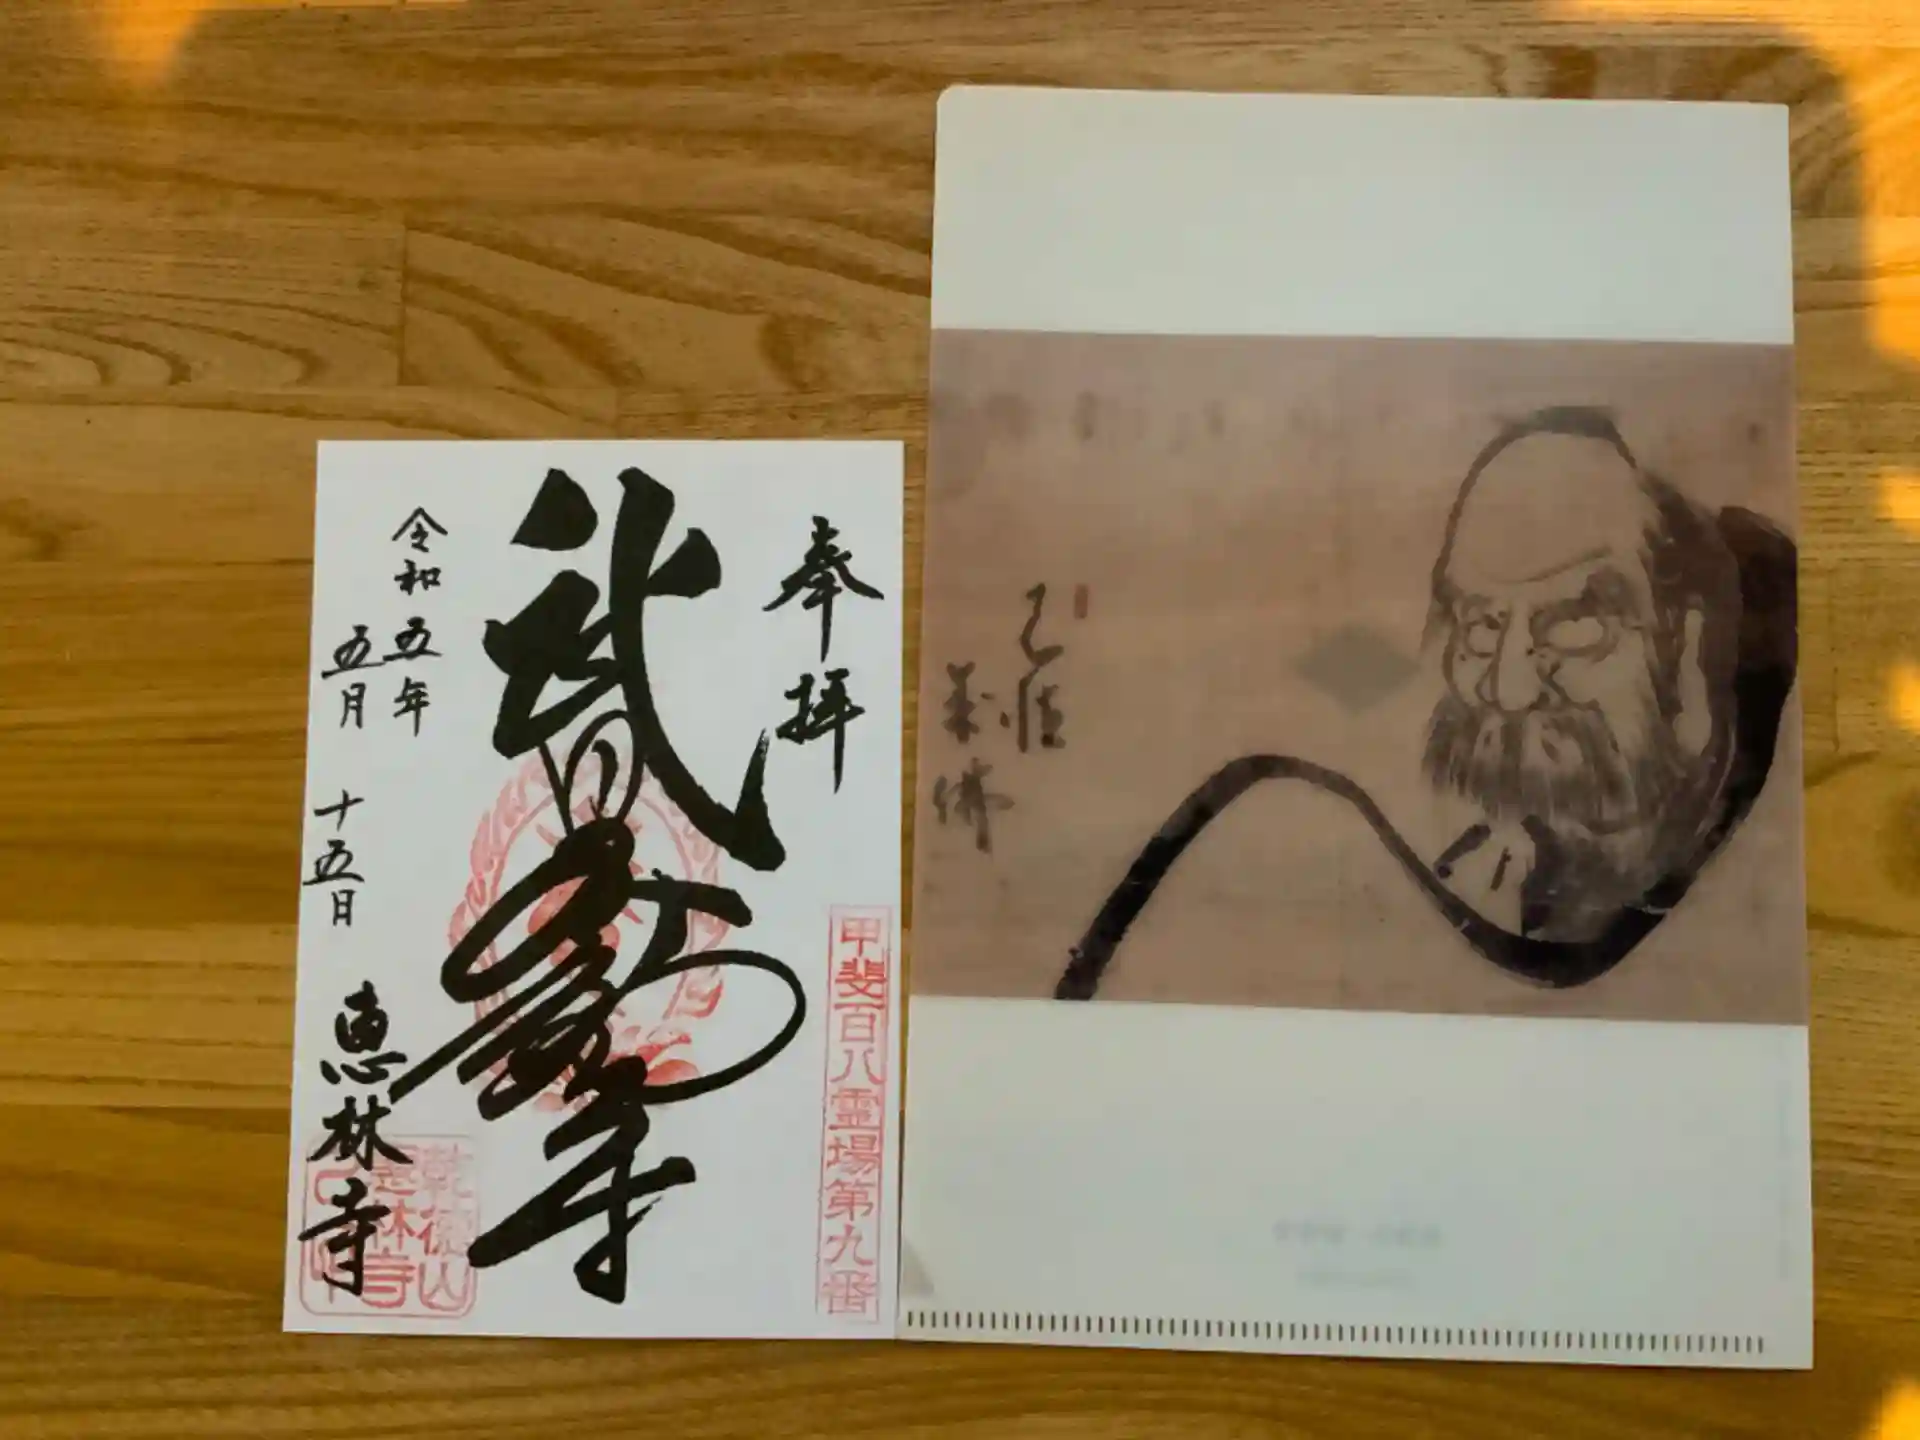 奉拝
甲斐百八霊場第九番
武田不動尊
令和五年
五月十五日
恵林寺
乾徳山
恵林寺